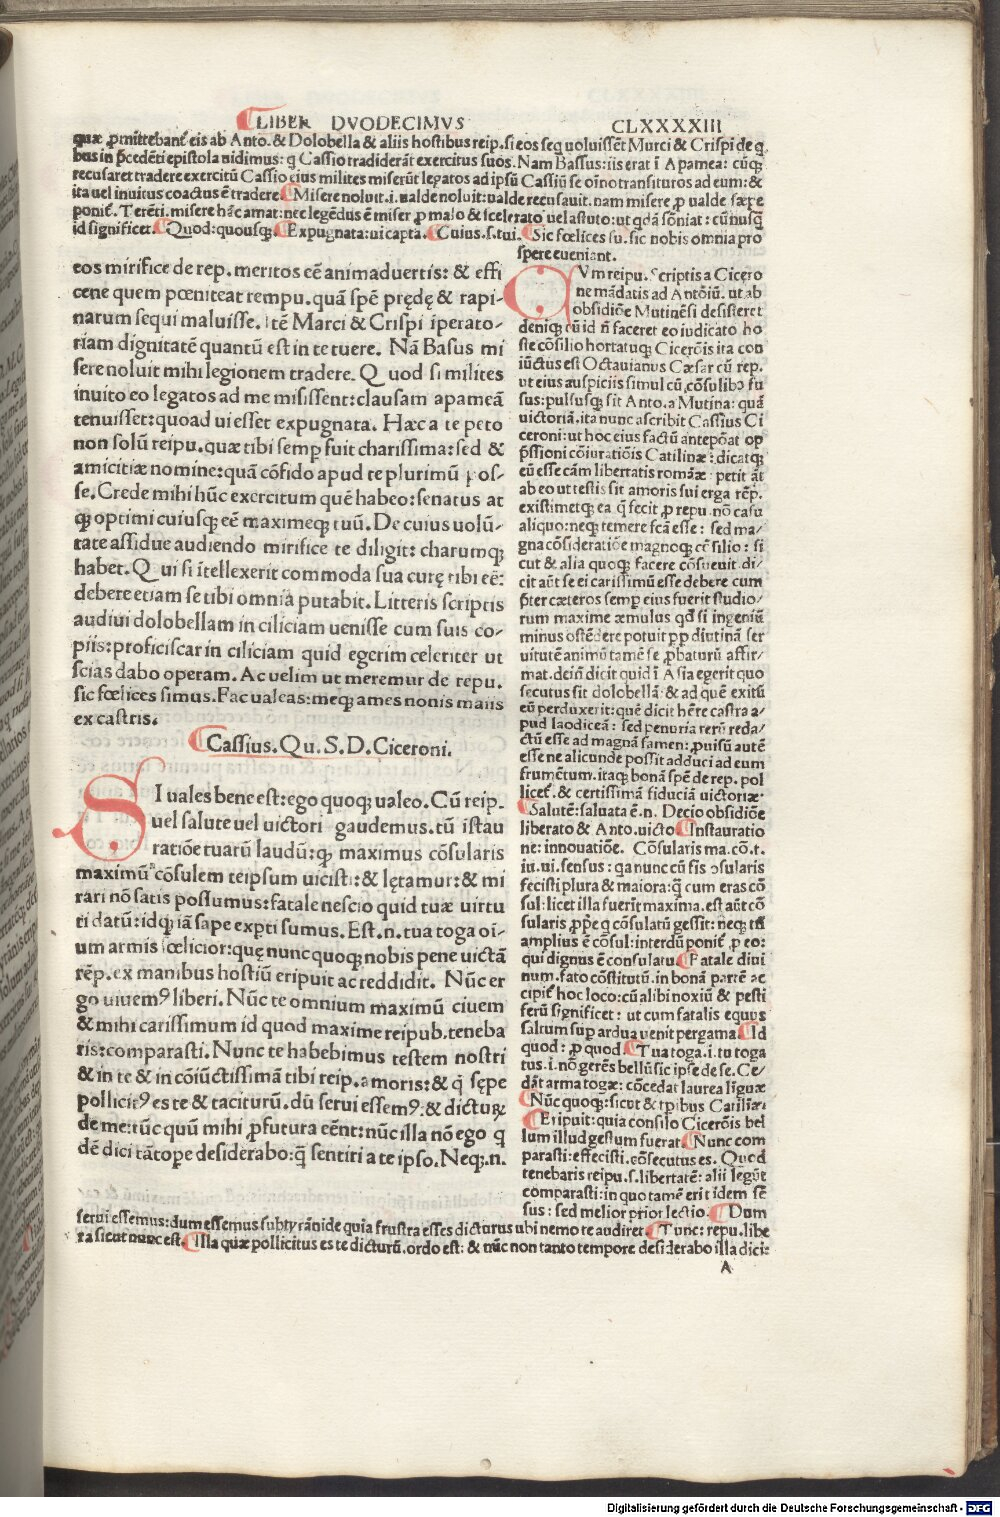 LIBER DVODECIMVS CLXXXXIII
quæ ꝓmittebant͂ eis ab Anto. & Dolobella & aliis hostibus reip. si eos seq uoluissēt Murci & Crispi de q
bus in p̄cedēti epistola uidimus: q Cassio tradiderāt exercitus suos. Nam Bassus: iis erat ī Apamea: cūqꝫ
recusaret tradere exercitū Cassio eius milites miserūt legatos ad ipsū Cassiū se oīno transituros ad eum: &
ita uel inuitus coactus ē tradere Misere noluit. i. ualde noluit: ualde recusauit. nam misere ꝓ ualde sæpe
ponit͂. Terēti. misere hāc amat: nec legēdus ē miser ꝓ malo & scelerato uel astuto: ut qdā sōniat: cū nusq̄
id significet. Quod: quousqꝫ. Expugnata: ui capta. Cuius. s. tui. Sic fœlices su. sic nobis omnia pro
spere eueniant.
eos mirifice de rep. meritos eē animaduertis: & effi
cene quem pœniteat tempu. quā spē prędę & rapi-
narum sequi maluisse. Itē Marci & Crispi īperato-
riam dignitatē quantū est in te tuere. Nā Basus mi
sere noluit mihi legionem tradere. Q uod si milites
inuito eo legatos ad me misissent: clausam apameā
tenuisset: quoad ui esset expugnata. Hæc a te peto
non solū reipu. quæ tibi semp fuit charissima: sed &
amicitiæ nomine: quā cōfido apud te plurimū pos-
se. Crede mihi hūc exercitum quē habeo: senatus at
qꝫ optimi cuiusqꝫ eē maximeqꝫ tuū. De cuius uolū-
tate assidue audiendo mirifice te diligit: charumqꝫ
habet. Q ui si ītellexerit commoda sua curę tibi eē:
debere etiam se tibi omnia putabit. Litteris scriptis
audiui dolobellam in ciliciam uenisse cum suis co-
piis: proficiscar in ciliciam quid egerim celeriter ut
scias dabo operam. Ac uelim ut meremur de repu.
sic fœlices simus. Fac ualeas: meqꝫ ames nonis maiis
ex castris.
Cassius. Qu. S. D. Ciceroni.
SI uales bene est: ego quoqꝫ ualeo. Cū reip.
uel salute uel uictori gaudemus. tū īstau
ratiōe tuarū laudū: qꝫ maximus cōsularis
maximū cōsulem teipsum uicisti: & lętamur: & mi
rari nō satis possumus: fatale nescio quid tuæ uirtu
ti datū: idqꝫ iā sæpe exꝑti sumus. Est. n. tua toga oī-
um armis fœlicior: quę nunc quoqꝫ nobis pene uictā
rēp. ex manibus hostiū eripuit ac reddidit. Nūc er
go uiuemꝰ liberi. Nūc te omnium maximū ciuem
& mihi carissimum id quod maxime reipub. teneba
ris: comparasti. Nunc te habebimus testem nostri
& in te & in cōiūctissimā tibi reip. amoris: & q̄ sępe
pollicitꝰ es te & taciturū. dū serui essemꝰ: & dicturꝫ
de me: tūc quū mihi ꝓfutura eēnt: nūc illa nō ego q
dē dici tātoꝑe desiderabo: q̄ sentiri a te ipso. Neqꝫ. n.
CVm reipu. scriptis a Cicero
ne mādatis ad Antōiū. ut ab
obsidiōe Mutinēsi desisteret
deniqꝫ cū id n̄ faceret eo iudicato ho
ste cōsilio hortatuqꝫ Cicerōis ita con
iūctus est Octauianus Cæsar cū rep.
ut eius auspiciis simul cū cōsulibꝫ fu
sus: pulsusqꝫ sit Anto. a Mutina: quā
uictoriā. ita nunc ascribit Cassius Ci
ceroni: ut hoc eius factū antepōat op
p̄ssioni cōiuratiōis Catilinæ: dicatqꝫ
eū esse cām libertatis romæ: petit āt
ab eo ut testis sit amoris sui erga rēp.
existimetqꝫ ea q̄ fecit ꝓ repu. nō casu
aliquo: neqꝫ temere fcā esse: sed ma/
gna cōsideratiōe magnoqꝫ cōsilio: si
cut & alia quoqꝫ facere cōsueuit. di/
cit aūt se ei carissimū esse debere cum
p̄ter cæteros semp eius fuerit studio/
rum maxime æmulus qd si ingeniū
minus ostēdere potuit ꝓp diutinā ser
uitutē animū tamē se ꝓbaturū affir/
mat. deīn dicit quid ī Asia egerit quo
secutus sit dolobellā: & ad quē exitū
eū perduxerit: quē dicit hēre castra a/
pud laodiceā: sed penuria rerū reda/
ctū esse ad magnā famen: ꝓuisū autē
esse ne alicunde possit adduci ad eum
frumētum. itaqꝫ bonā spē de rep. pol
licet͂. & certissimā fiduciā uictoriæ.
Salutē: saluata ē. n. Decio obsidiōe
liberato & Anto. uicto Instauratio
ne: innouatiōe. Cōsularis ma. cō. t.
iu. ui. sensus: qa nunc cū sis ɔsularis
fecisti plura & maiora: q̄ cum eras cō
sul: licet illa fuerīt maxima. est aūt cō
sularis ꝓp̄e q cōsulatū gessit: neqꝫ tn̄
amplius ē cōsul: interdū ponit͂ ꝓ eo:
qui dignus ē consulatu Fatale diui
num. fato cōstitutū. in bonā partē ac
cipit͂ hoc loco: cū alibi noxiū & pesti
ferū significet: ut cum fatalis equus
saltum sup ardua uenit pergama Id
quod: ꝓ quod Tua toga. i. tu toga
tus. i. nō gerēs bellū sic ipse de se. Ce/
dāt arma togæ: cōcedat laurea līguæ
Nūc quoqꝫ: sicut & tpibus Catilinæ:
Eripuit: quia consilo Cicerōis bel
lum illud gestum fuerat Nunc com
parasti: effecisti. cōsecutus es. Quod
tenebaris reipu. s. libertatē: alii legūt
comparasti: in quo tamē erit idem sē
sus: sed melior prior lectio. Dum
serui essemus: dum essemus sub tyrānide quia frustra esses dicturus ubi nemo te audiret Tunc: repu. libe
ra sicut nunc est. Illa quæ pollicitus es te dicturū. ordo est: & nūc non tanto tempore desiderabo illa dici:
A
Digitalisierung gefördert durch die Deutsche Forschungsgemeinschaft - DFG